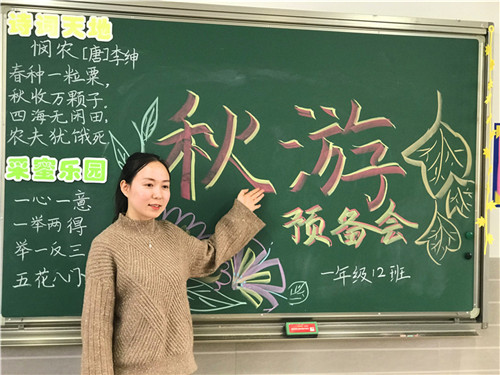 诗词天地
悯农[唐]李绅
春种一粒粟,
秋收万颗子.
四海无闲田,
农夫犹饿死
采蜜乐园
一心一意
一举两得
举一反三
五花八门
秋游
预备会
一年级12班